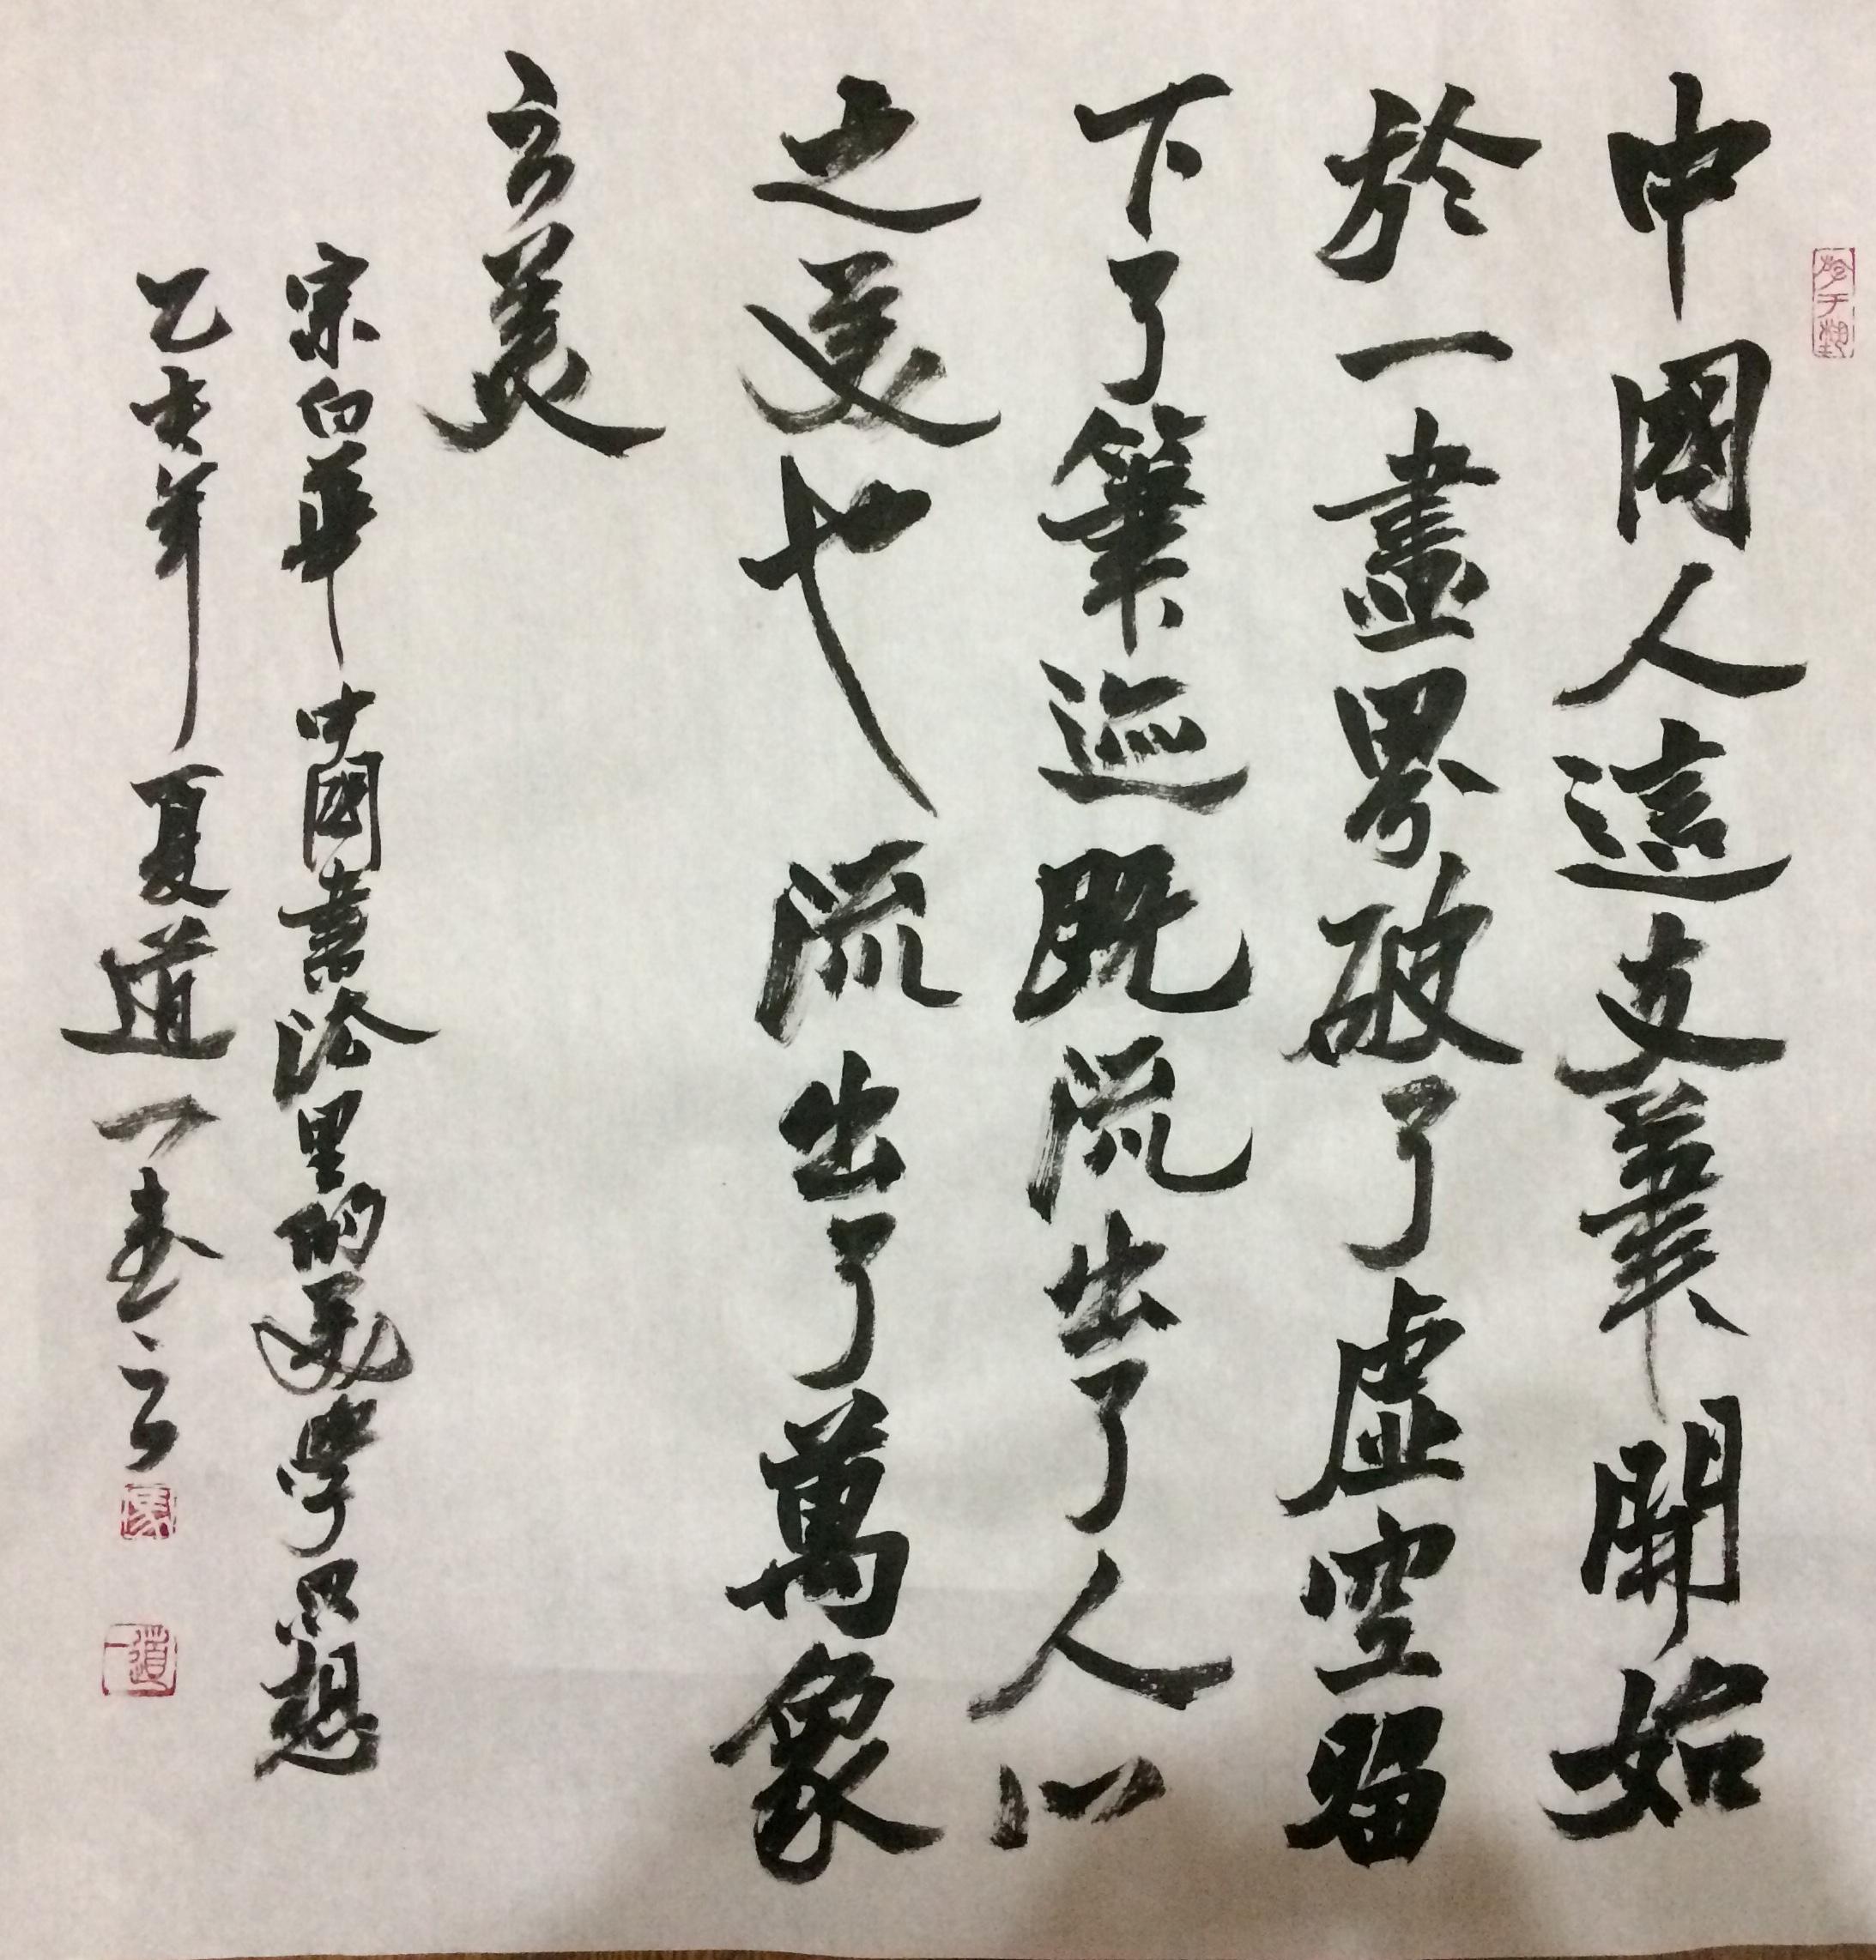 中國人這支筆開始
於一畫界破了虛空留
下了筆迹既流出了人心
之美也流出了萬象
之美
宗白華中國書法里的美學思想
乙未年夏道一書之
道一